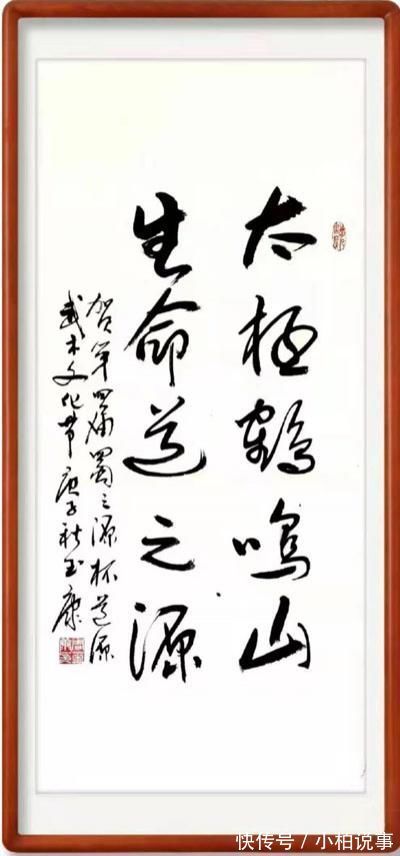 太极鹤鸣山
生命道之源
贺第四届蜀之源杯道源
武术文化节庚子秋玉康
快传号 / 小柏说事